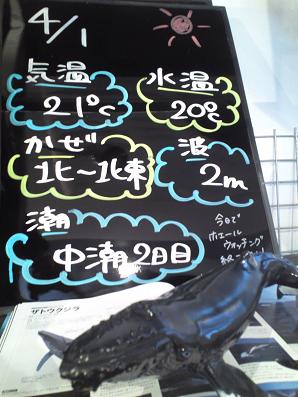 4/1
気温
21℃
水温
20℃
かぜ
北～北東
波
2m
潮
中潮2日目
今日で
ホエール
ウォッチング
ザトウクジラ